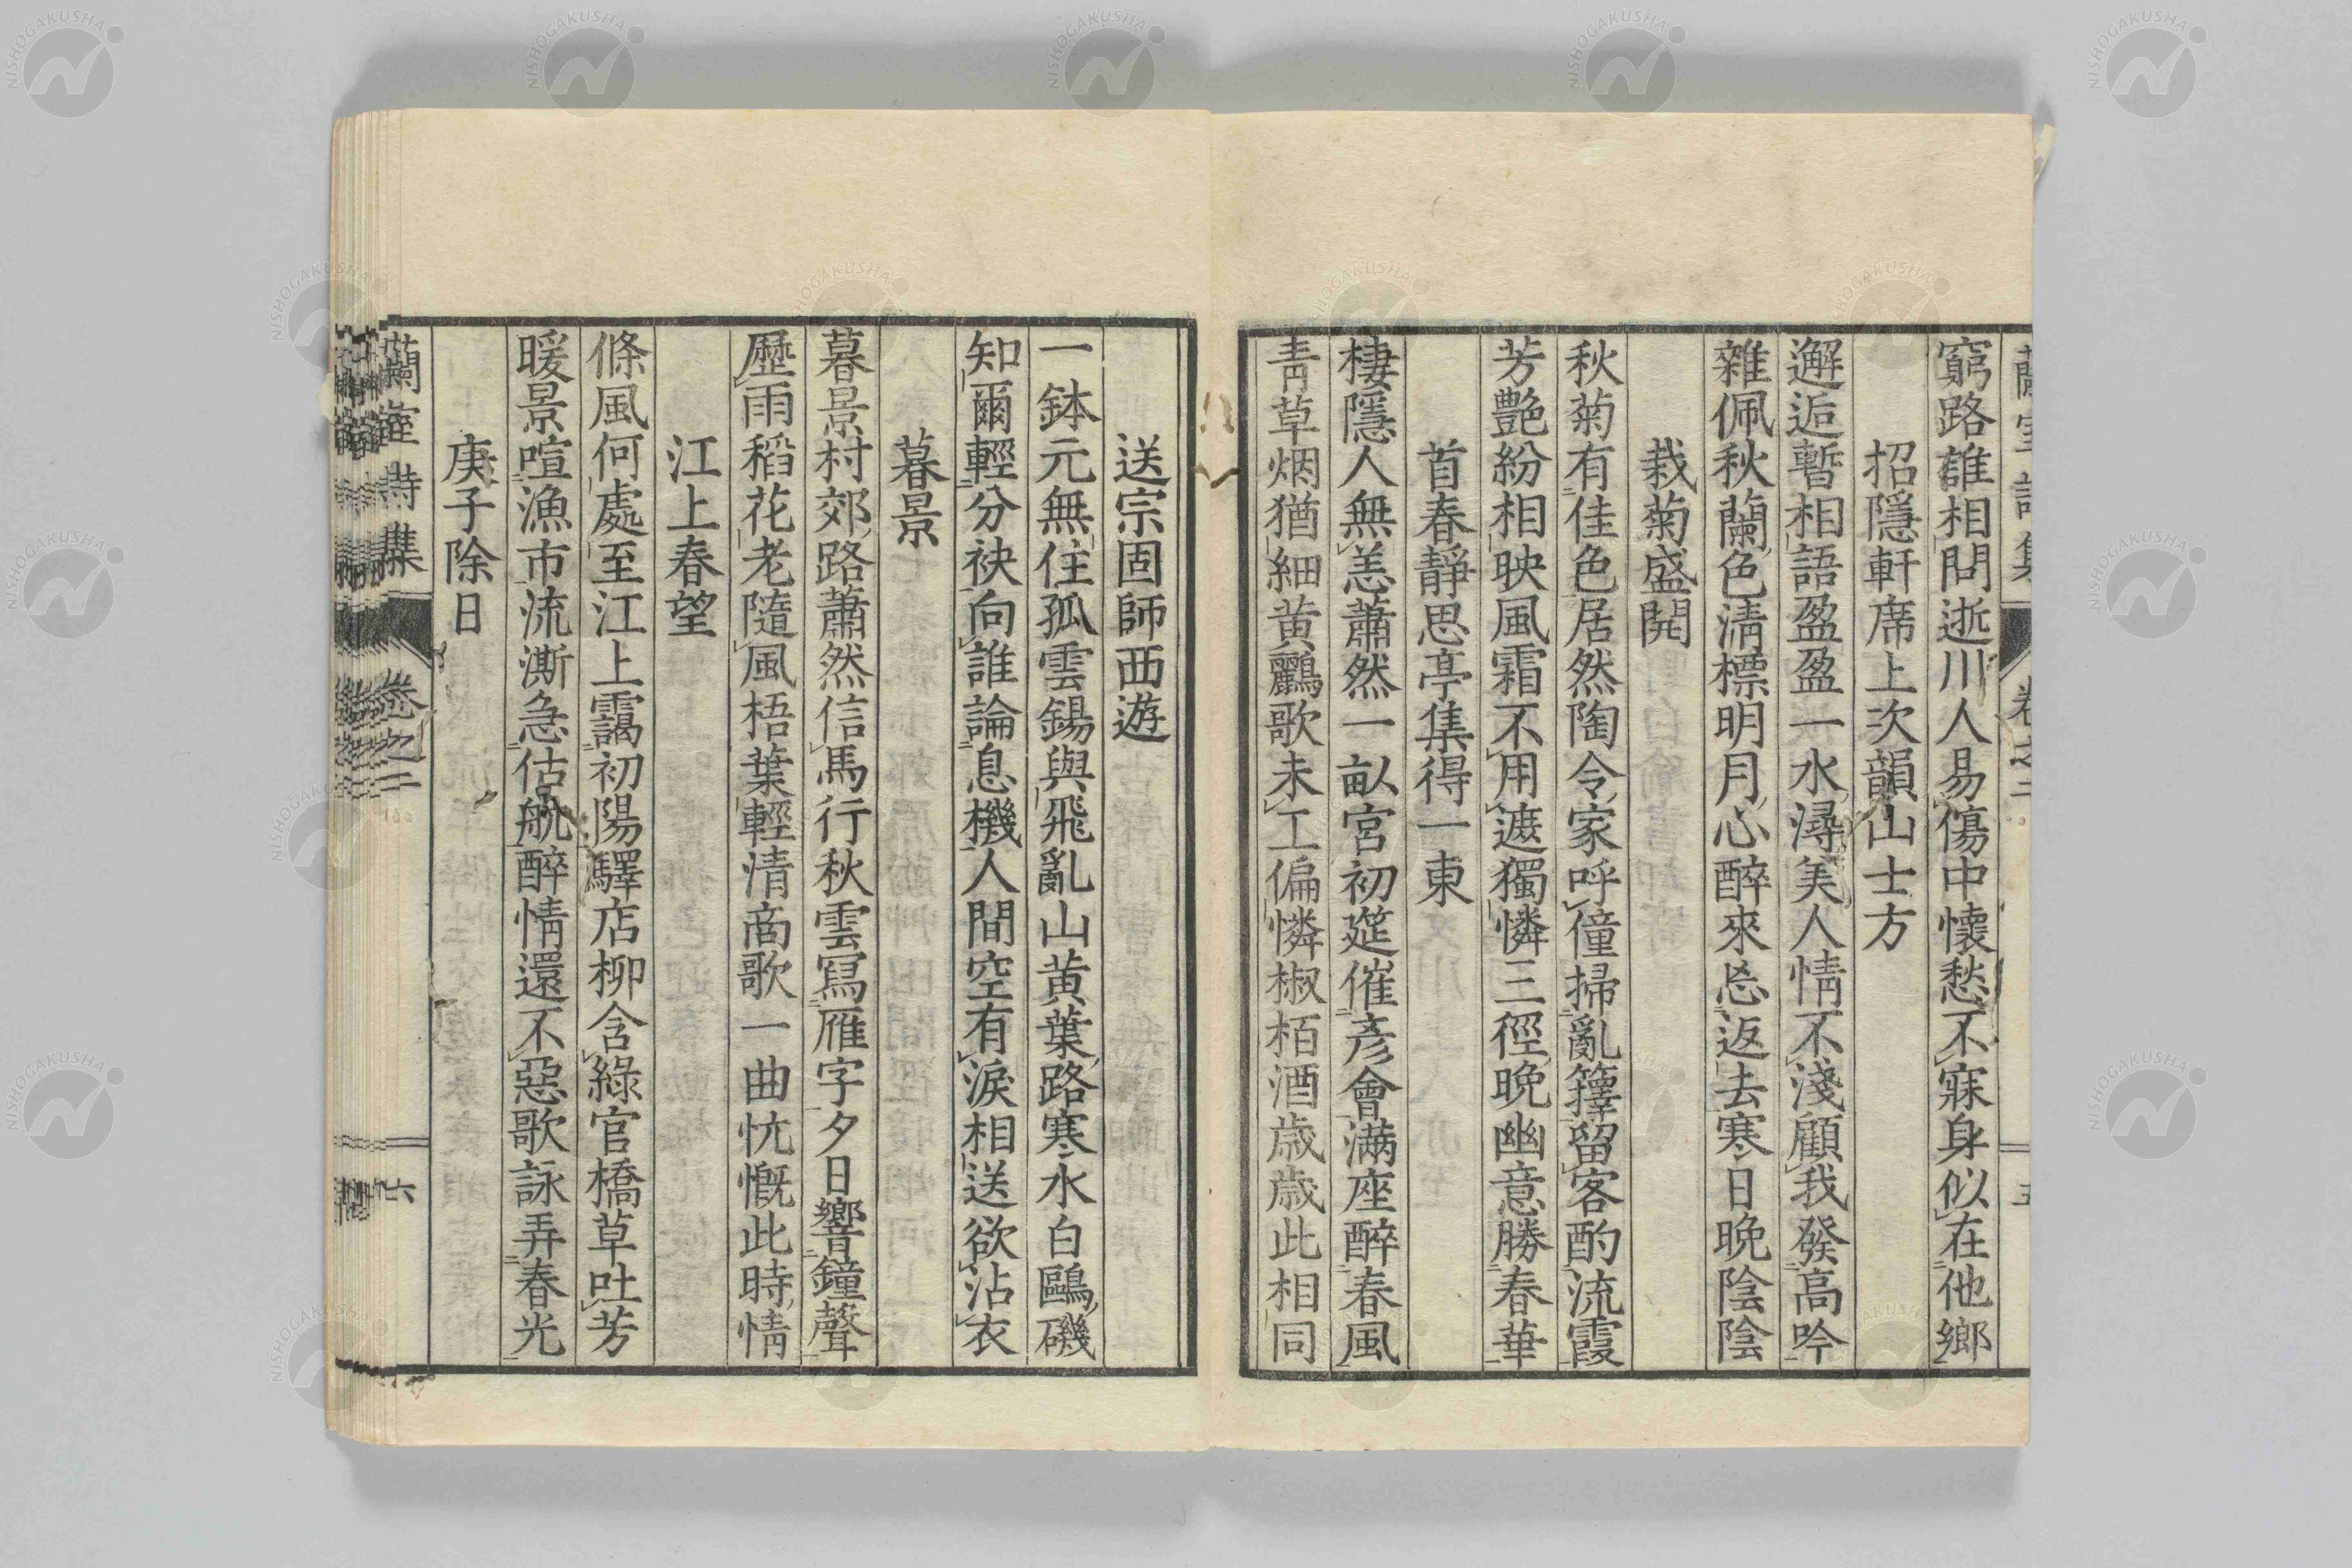 窮路誰相問逝川人易傷中懷愁不寐身似在他鄉
招隱軒席上次韻山士方
邂逅暫相語盈盈一水潯美人情不淺顧我發高吟
雜佩秋蘭色淸標明月心醉來忘返去寒日晚陰陰
栽菊盛開
秋菊有佳色居然陶令家呼僮掃亂籜留客酌流霞
芳艷紛相映風霜不用遮獨憐三徑晚幽意勝春華
首春靜思亭集得一東
棲隱人無恙蕭然一畝宮初筵催彥會滿座醉春風
靑草烟猶細黃鸝歌未工偏憐椒栢酒歲歲此相同
送宗固師西遊
一鉢元無住孤雲錫與飛亂山黃葉路寒水白鷗磯
知爾輕分袂向誰論息機人間空有淚相送欲沾衣
暮景
暮景村郊路蕭然信馬行秋雲寫雁字夕日響鐘聲
歷雨稻花老隨風梧葉輕清商歌一曲忼慨此時情
江上春望
條風何處至江上靄初陽驛店柳含綠官橋草吐芳
暖景喧漁市流澌急估航醉情還不惡歌詠弄春光
庚子除日
蘭室詩集 卷之二 六
NISHOGAKUSHA